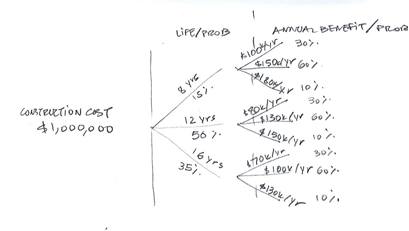 LIFE/PROB
ANNUAL BENEFIT/PROB
CONSTRUCTION COST
$1,000,000
8 yrs
15%
$100k/yr 30%
$150k/yr 60%
$180k/yr 10%
12 yrs
50%
$80k/yr 30%
$130k/yr 60%
$150k/yr 10%
16 yrs
35%
$70k/yr 30%
$100k/yr 60%
$130k/yr 10%